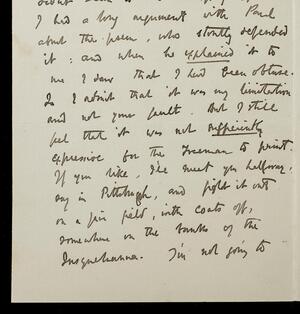 I had a long argument with Paul
about the poem, who stoutly defended
it: and when he explained it to
me I saw that I had been obtuse.
So I admit that it was my limitation
and not your fault. But I still
feel that it was not sufficiently
expressive for the Freeman to print.
If you like, I'll meet you halfway,
say in Pittsburgh, and fight it out
on a fair field, with coats off,
somewhere on the banks of the
Susquehanna. I'm not going to